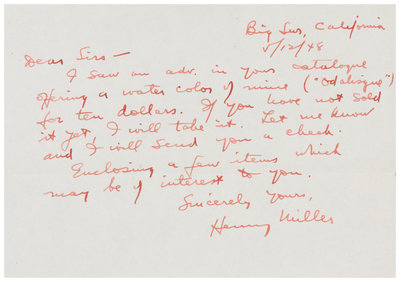 Big Sur, California
5/12/48
Dear Sirs—
I saw an adv. in your catalogue
offering a water color of mine ("Odalisque")
for ten dollars. If you have not sold
it yet, I will take it. Let me know
and I will send you a check.
Enclosing a few items which
may be of interest to you.
Sincerely yours,
Henry Miller